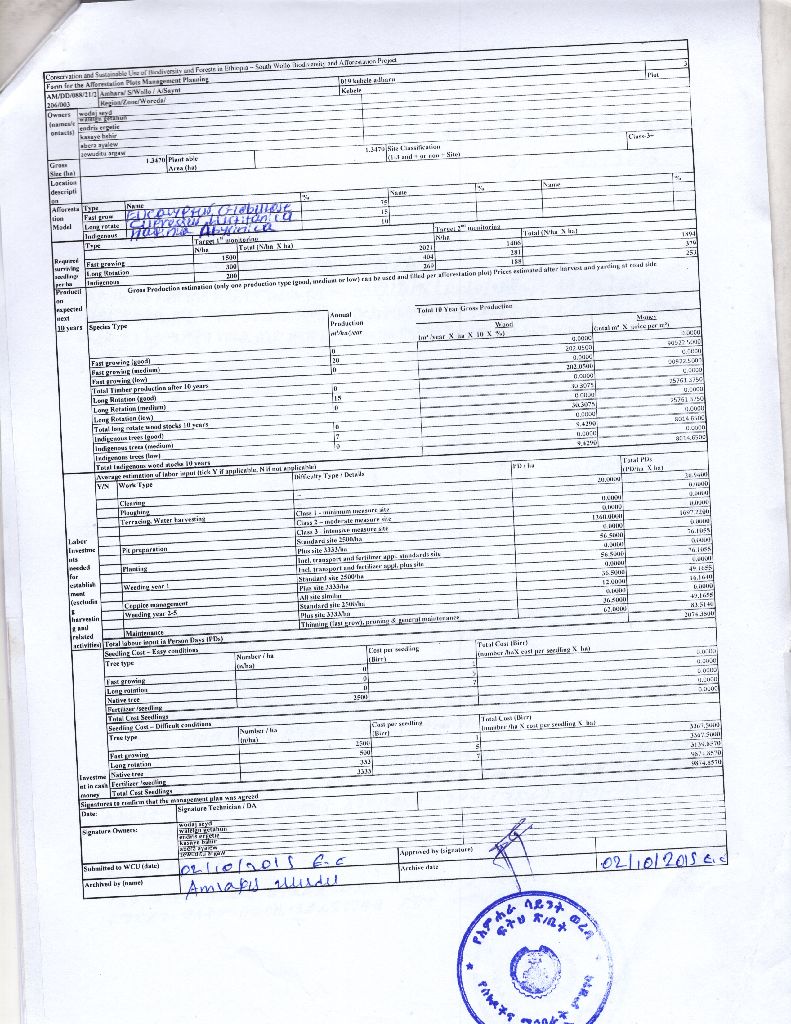 Conservation and Sustainable Use of Biodiversity and Forests in Ethiopia – South Wollo Biodiversity and Afforestation Project
Form for the Afforestation Plots Management Planning
AM/DD/088/21/2 206/003 Amhara/ S/Wollo / A/Saynt 019 kebele adharo 3
Region/Zone/Woreda/ Kebele Plot
Owners (names/contacts)
wodaj seyd
walelgn getahun
endris ergetie
kasaye behir
abera ayalew
zewuditu argaw
Gross Size (ha) 1.3470 Plant able Area (ha) 1.3470 Site Classification (1-3 and + or non + Site) Class-3+
Location description
Afforestation Model Type Name % Name % Name %
Fast grow Eucalyptus Globulose 75
Long rotate Cupressus Lusitanica 15
Indigenous Hagenia Abyssinica 10
Required surviving seedlings per ha
Type Target 1st monitoring Target 2nd monitoring
N/ha Total (N/ha X ha) N/ha Total (N/ha X ha)
Fast growing 1500 2021 1406 1894
Long Rotation 300 404 281 379
Indigenous 200 269 188 253
Gross Production estimation (only one production type (good, medium or low) can be used and filled per afforestation plot) Prices estimated after harvest and yarding at road side
Production expected next 10 years
Species Type Annual Production m³/ha/year Total 10 Year Gross Production
Wood (m³ /year X ha X 10 X %) Money (total m³ X price per m³)
Fast growing (good) 0 0.0000 0.0000
Fast growing (medium) 20 202.0500 90922.5000
Fast growing (low) 0 0.0000 0.0000
Total Timber production after 10 years 202.0500 90922.5000
Long Rotation (good) 0 0.0000 0.0000
Long Rotation (medium) 15 30.3075 25761.3750
Long Rotation (low) 0 0.0000 0.0000
Total long rotate wood stocks 10 years 30.3075 25761.3750
Indigenous trees (good) 0 0.0000 0.0000
Indigenous trees (medium) 7 9.4290 8014.6500
Indigenous trees (low) 0 0.0000 0.0000
Total Indigenous wood stocks 10 years 9.4290 8014.6500
Average estimation of labor input (tick Y if applicable, N if not applicable)
Labor Investments needed for establishment (excluding harvesting and related activities)
Y/N Work Type Difficulty Type / Details PD / ha Total PDs (PD/ha X ha)
Clearing
Ploughing
Terracing, Water harvesting Class 1 - minimum measure site
Class 2 – moderate measure site
Class 3 - intensive measure site
Pit preparation Standard site 2500/ha
Plus site 3333/ha
Planting Incl. transport and fertilizer app. standards site
Incl. transport and fertilizer appl. plus site
Weeding year 1 Standard site 2500/ha
Plus site 3333/ha
Coppice management All site similar
Weeding year 2-5 Standard site 2500/ha
Plus site 3333/ha
Maintenance Thinning (fast grow), pruning & general maintenance 62.0000 83.5140
Total labour input in Person Days (PDs)
Investment in cash money
Seedling Cost – Easy conditions
Tree type Number / ha (n/ha) Cost per seedling (Birr) Total Cost (Birr) (number /haX cost per seedling X ha)
Fast growing 0 1 0.0000
Long rotation 0 5 0.0000
Native tree 0 7 0.0000
Fertilizer /seedling 2500
Total Cost Seedlings 0.0000
Seedling Cost – Difficult conditions
Tree type Number / ha (n/ha) Cost per seedling (Birr) Total Cost (Birr) (number /ha X cost per seedling X ha)
Fast growing 2500 1 3367.5000
Long rotation 500 5 3367.5000
Native tree 333 7 3139.8570
Fertilizer /seedling 3333
Total Cost Seedlings 9874.8570
Signatures to confirm that the management plan was agreed
Date: Signature Technician / DA
Signature Owners:
wodaj seyd
walelgn getahun
endris ergetie
kasaye behir
abera ayalew
zewuditu argaw
Submitted to WCU (date) 02/10/2015 E.C Approved by (signature)
Archived by (name) Archive date 02/10/2015 E.C